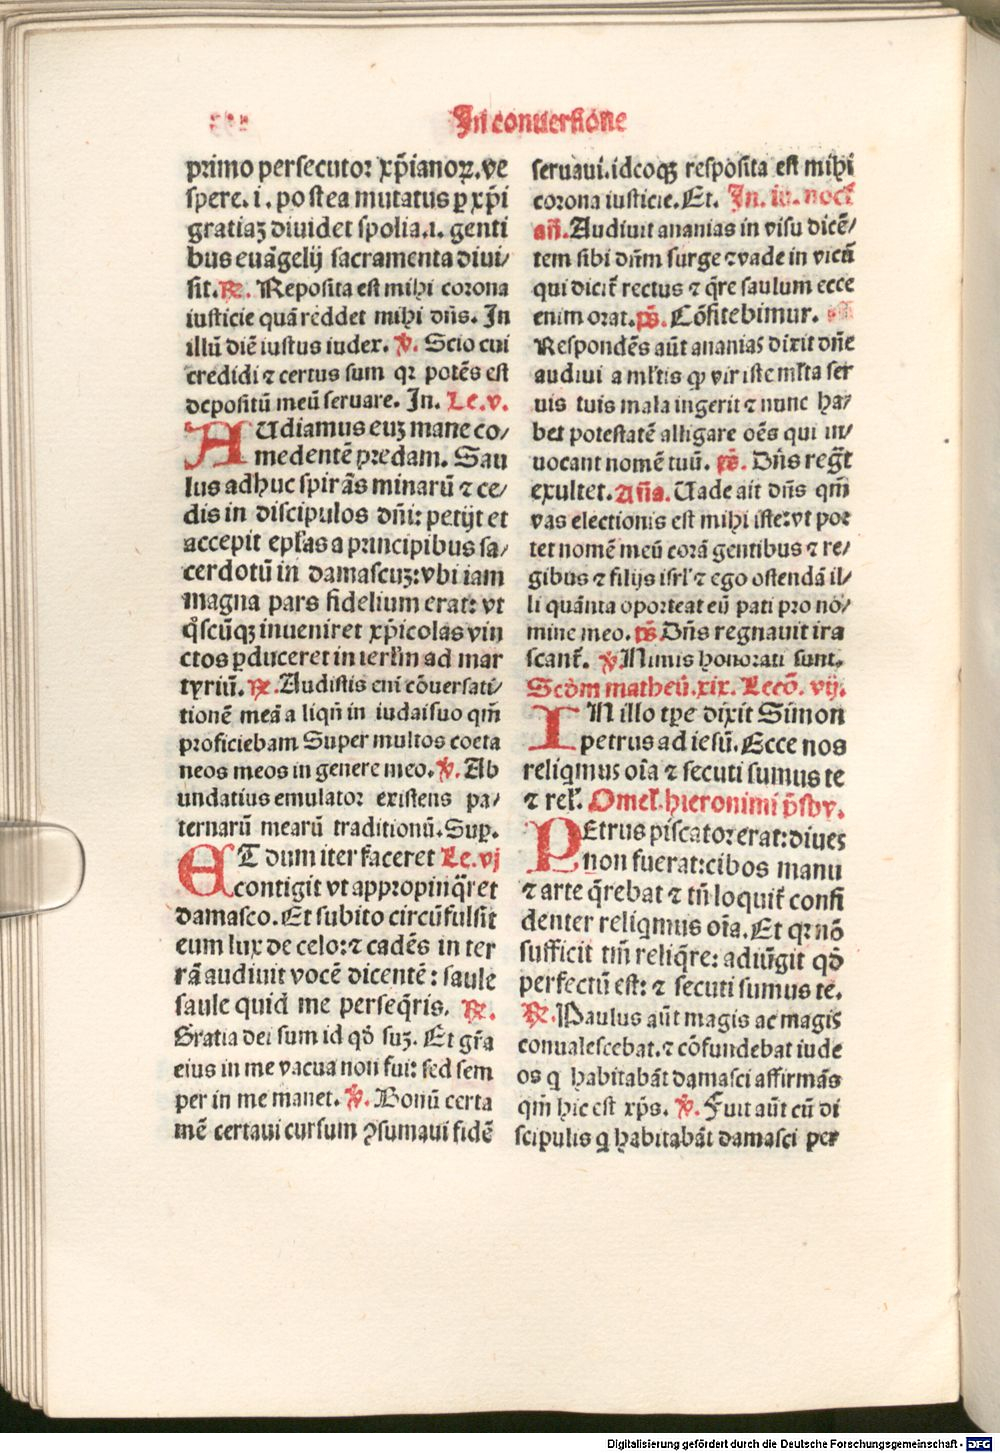 In conuersione
primo persecutor xp̄ianoꝝ.ve
spere.i.postea mutatus ꝑ xp̄i
gratiaꝫ diuidet spolia.i. genti
bus euāgelij sacramenta diui/
sit.℞. Reposita est mihi corona
iusticie quā reddet mihi dn̄s. In
illū diē iustus iudex. ℣. Scio cui
credidi ⁊ certus sum qꝛ potēs est
depositū meū seruare. In. Le.v.
AUdiamus euꝫ mane co/
medentē predam. Sau
lus adhuc spirās minarū ⁊ ce/
dis in discipulos dn̄i: petijt et
accepit ep̄las a principibus sa/
cerdotū in damascuꝫ:vbi iam
magna pars fidelium erat: vt
q̊scūqꝫ inueniret xp̄icolas vin
ctos ꝑduceret in ierl̄m ad mar
tyriū. ℞. Audistis eni cōuersati/
tionē meā a liqn̄ in iudaisuo qm̄
proficiebam Super multos coeta
neos meos in genere meo. ℣. Ab
undatius emulator existens pa/
ternarū mearū traditionū.Suꝑ.
ET dum iter faceret Le.vj
contigit vt appropinq̄ret
damasco. Et subito circūfulsit
eum lux de celo:⁊ cadēs in ter
rā audiuit vocē dicentē: saule
saule quid me perseq̄ris. ℞.
Gratia dei sum id qd̄ suꝫ. Et gr̄a
eius in me vacua non fui: sed sem
per in me manet. ℣. Bonū certa
mē certaui cursum ꝯsumaui fidē
seruaui.ideoqꝫ resposita est mihi
corona iusticie.Et. In. iii. noct̄
añ.Audiuit ananias in visu dicē/
tem sibi dn̄m surge ⁊vade in vicū
qui dicit̄ rectus ⁊ q̄re saulum ecce
enim orat.ps̄. Cōfitebimur.
Respondēs aūt ananias dixit dn̄e
audiui a ml̄tis ꝙ vir iste ml̄ta ser
uis tuis mala ingerit ⁊ nunc ha/
bet potestatē alligare oēs qui in/
uocant nomē tuū. ps̄. Dn̄s regt̄
exultet. Añа. Uade ait dn̄s qm̄
vas electionis est mihi iste:vt por
tet nomē meū corā gentibus ⁊ re/
gibus ⁊ filijs isrl̄ ⁊ ego ostendā il/
li quānta oporteat eū pati pro no/
mine meo. ps̄ Dn̄s regnauit ira
scant̄. ℣.Nimis honorati sunt.
Scd̄m matheū.xix. Lectō. vij.
IN illo tꝑe dixit Simon
petrus ad iesū. Ecce nos
reliqmus oīa ⁊ secuti sumus te
⁊ rel̄. Omel̄.hieronimi p̄sby.
PEtrus piscator erat:diues
non fuerat:cibos manu
⁊ arte q̄rebat ⁊ tn̄ loquit̄ confi
denter reliqmus oīa. Et qꝛ nō
sufficit tm̄ reliq̄re: adiūgit qd̄
perfectū est: ⁊ secuti sumus te.
℞. Paulus aūt magis ac magis
conualescebat.⁊ cōfundebat iude
os q habitabāt damasci affirmās
qm̄ hic est xp̄s. ℣. Fuit aūt cū di
scipulis q habitabāt damasci per
Digitalisierung gefördert durch die Deutsche Forschungsgemeinschaft - DFG